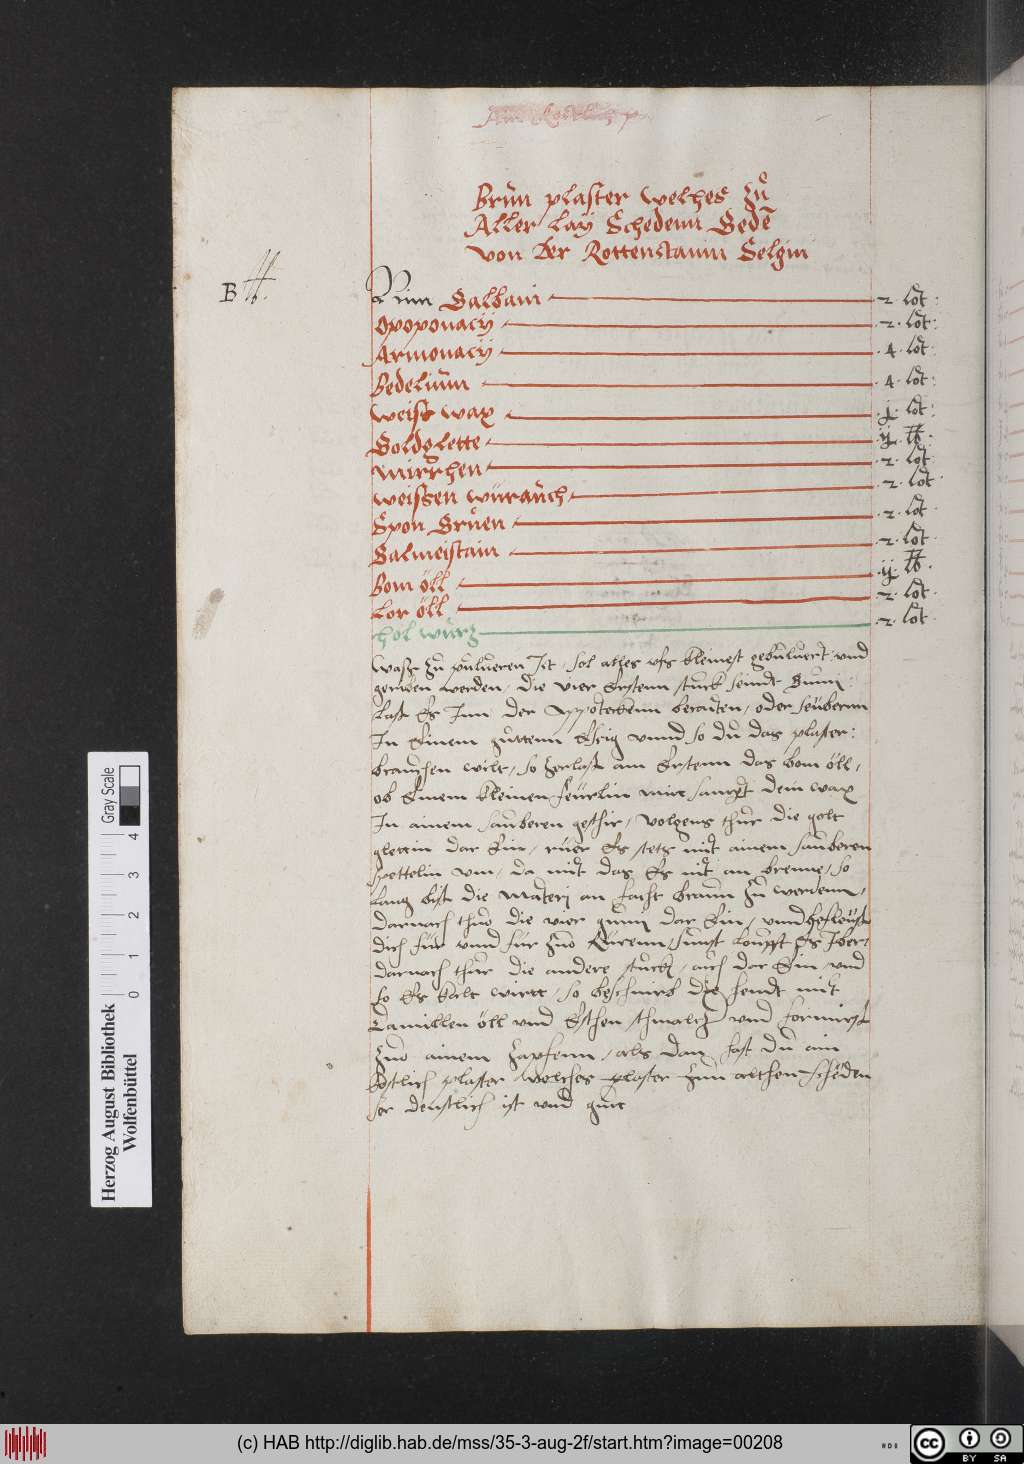 Brůn plaster welches zů
Aller lay Schedenn Gedē
von der Rottenstainn Selgin
B
Nim Galbani 2 lot
Opoponacÿ 2 lot
Armonacÿ 4 lot
Bedeliům 4 lot
weiss wax j lot
Goldglette ij lb
Mirrhen 2 lot
weissen würaůch 2 lot
Spon Grůen 2 lot
Galmeistain 2 lot
Bom öll ij lb
Lor öll 2 lot
hol wůrz 2 lot
wass zů půlveren Ist, sol alles ufs kleinest gebůlvert und
geriben werden, die vier Ersten stuck seindt Gumi
lass Es Inn der Appoteckenn beraiten, oder seübernn
In Einem gůttenn Essig unnd so dů das plaster
brauchen wilt, so zerlass am Erstenn das bom öll,
ob Einem kleinen feürlin mit sampt dem wax
In ainem sauberen geschir, volgens thůe die golt
glettin dar Ein, rüer Es stets mit ainem sauberen
spettelin um, da mit das Es nit an brenne, so
lang bist die Materj an facht braun zů werdenn,
darnach thuo die vier gumj dar Ein, unnd befleüst
dich für unnd für zuo Rürenn, sunst loufft Es Iber,
darnach thůe die andere stuck, auch dar Ein, und
so Es kalt wirtt, so beschmirb die hendt mit
Camillen öll und schmaltz und formiers
zuo ainem zapfenn, als dan hast dů ain
kostlich plaster welches plaster zun althen schäden
ser denstlich ist und guot
Herzog August Bibliothek
Wolfenbüttel
Gray Scale
0 1 2 3 4
(c) HAB http://diglib.hab.de/mss/35-3-aug-2f/start.htm?image=00208
cc BY SA